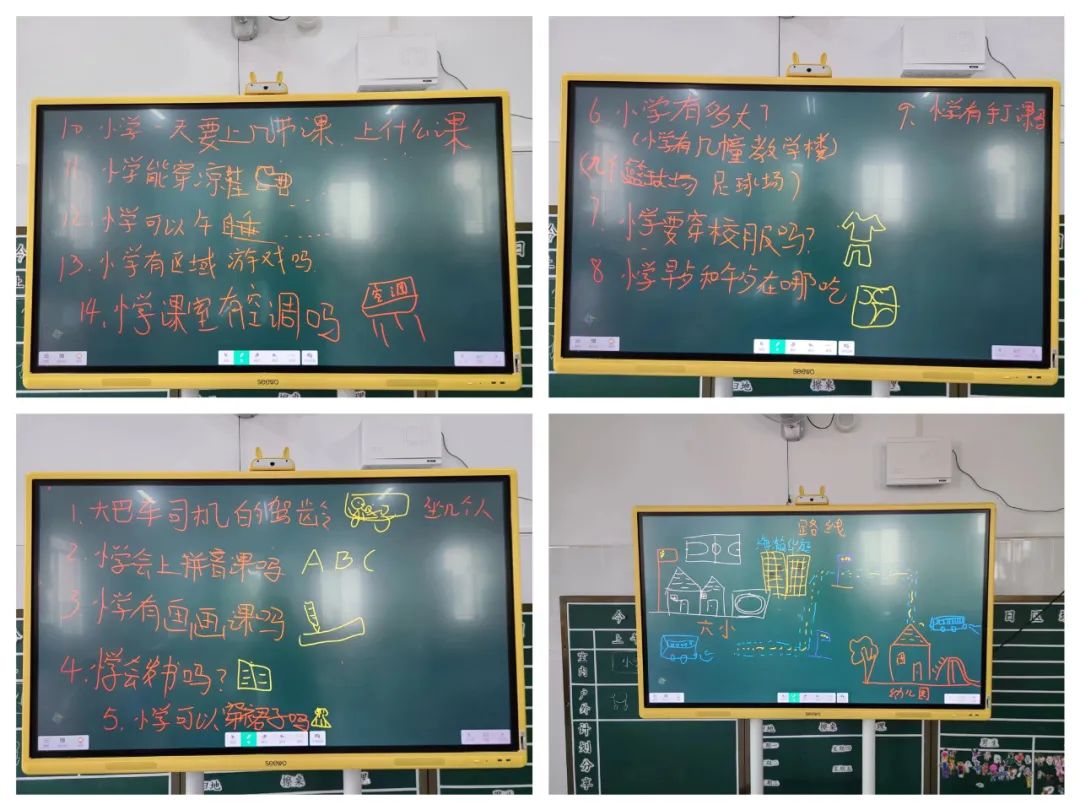 10. 小学一天要上几节课. 上什么课
11. 小学能穿凉鞋
12. 小学可以午睡......
13. 小学有区域游戏吗.
14. 小学课室有空调吗
空调
seewo
6. 小学有多大?
(小学有几幢教学楼)
(几个篮球场 足球场)
7. 小学要穿校服吗?
8 小学早歺和午歺在哪吃
9. 小学有手工课吗
seewo
扫地
擦桌
1. 大巴车司机的驾齿令
坐几个人
2. 小学会上拼音课吗 ABC
3. 小学有画画课吗
4. 小学会发书吗?
5. 小学可以穿裙子吗
seewo
扫地
路线
六小
幼儿园
seewo
今
日
区
上
室内
户外
计划分享
擦桌
男生